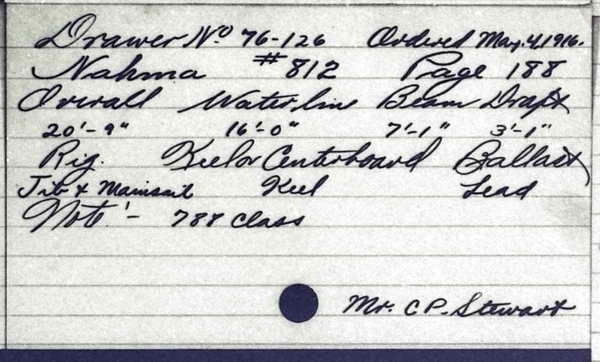 Drawer No 76-126 Ordered May, 4, 1916.
Nahma #812 Page 188
Overall Waterline Beam Draft
20'-9" 16'-0" 7'-1" 3'-1"
Rig. Keel or Centerboard Ballast
Jib & Mainsail Keel Lead
Note:- 788 class
Mr. C P. Stewart